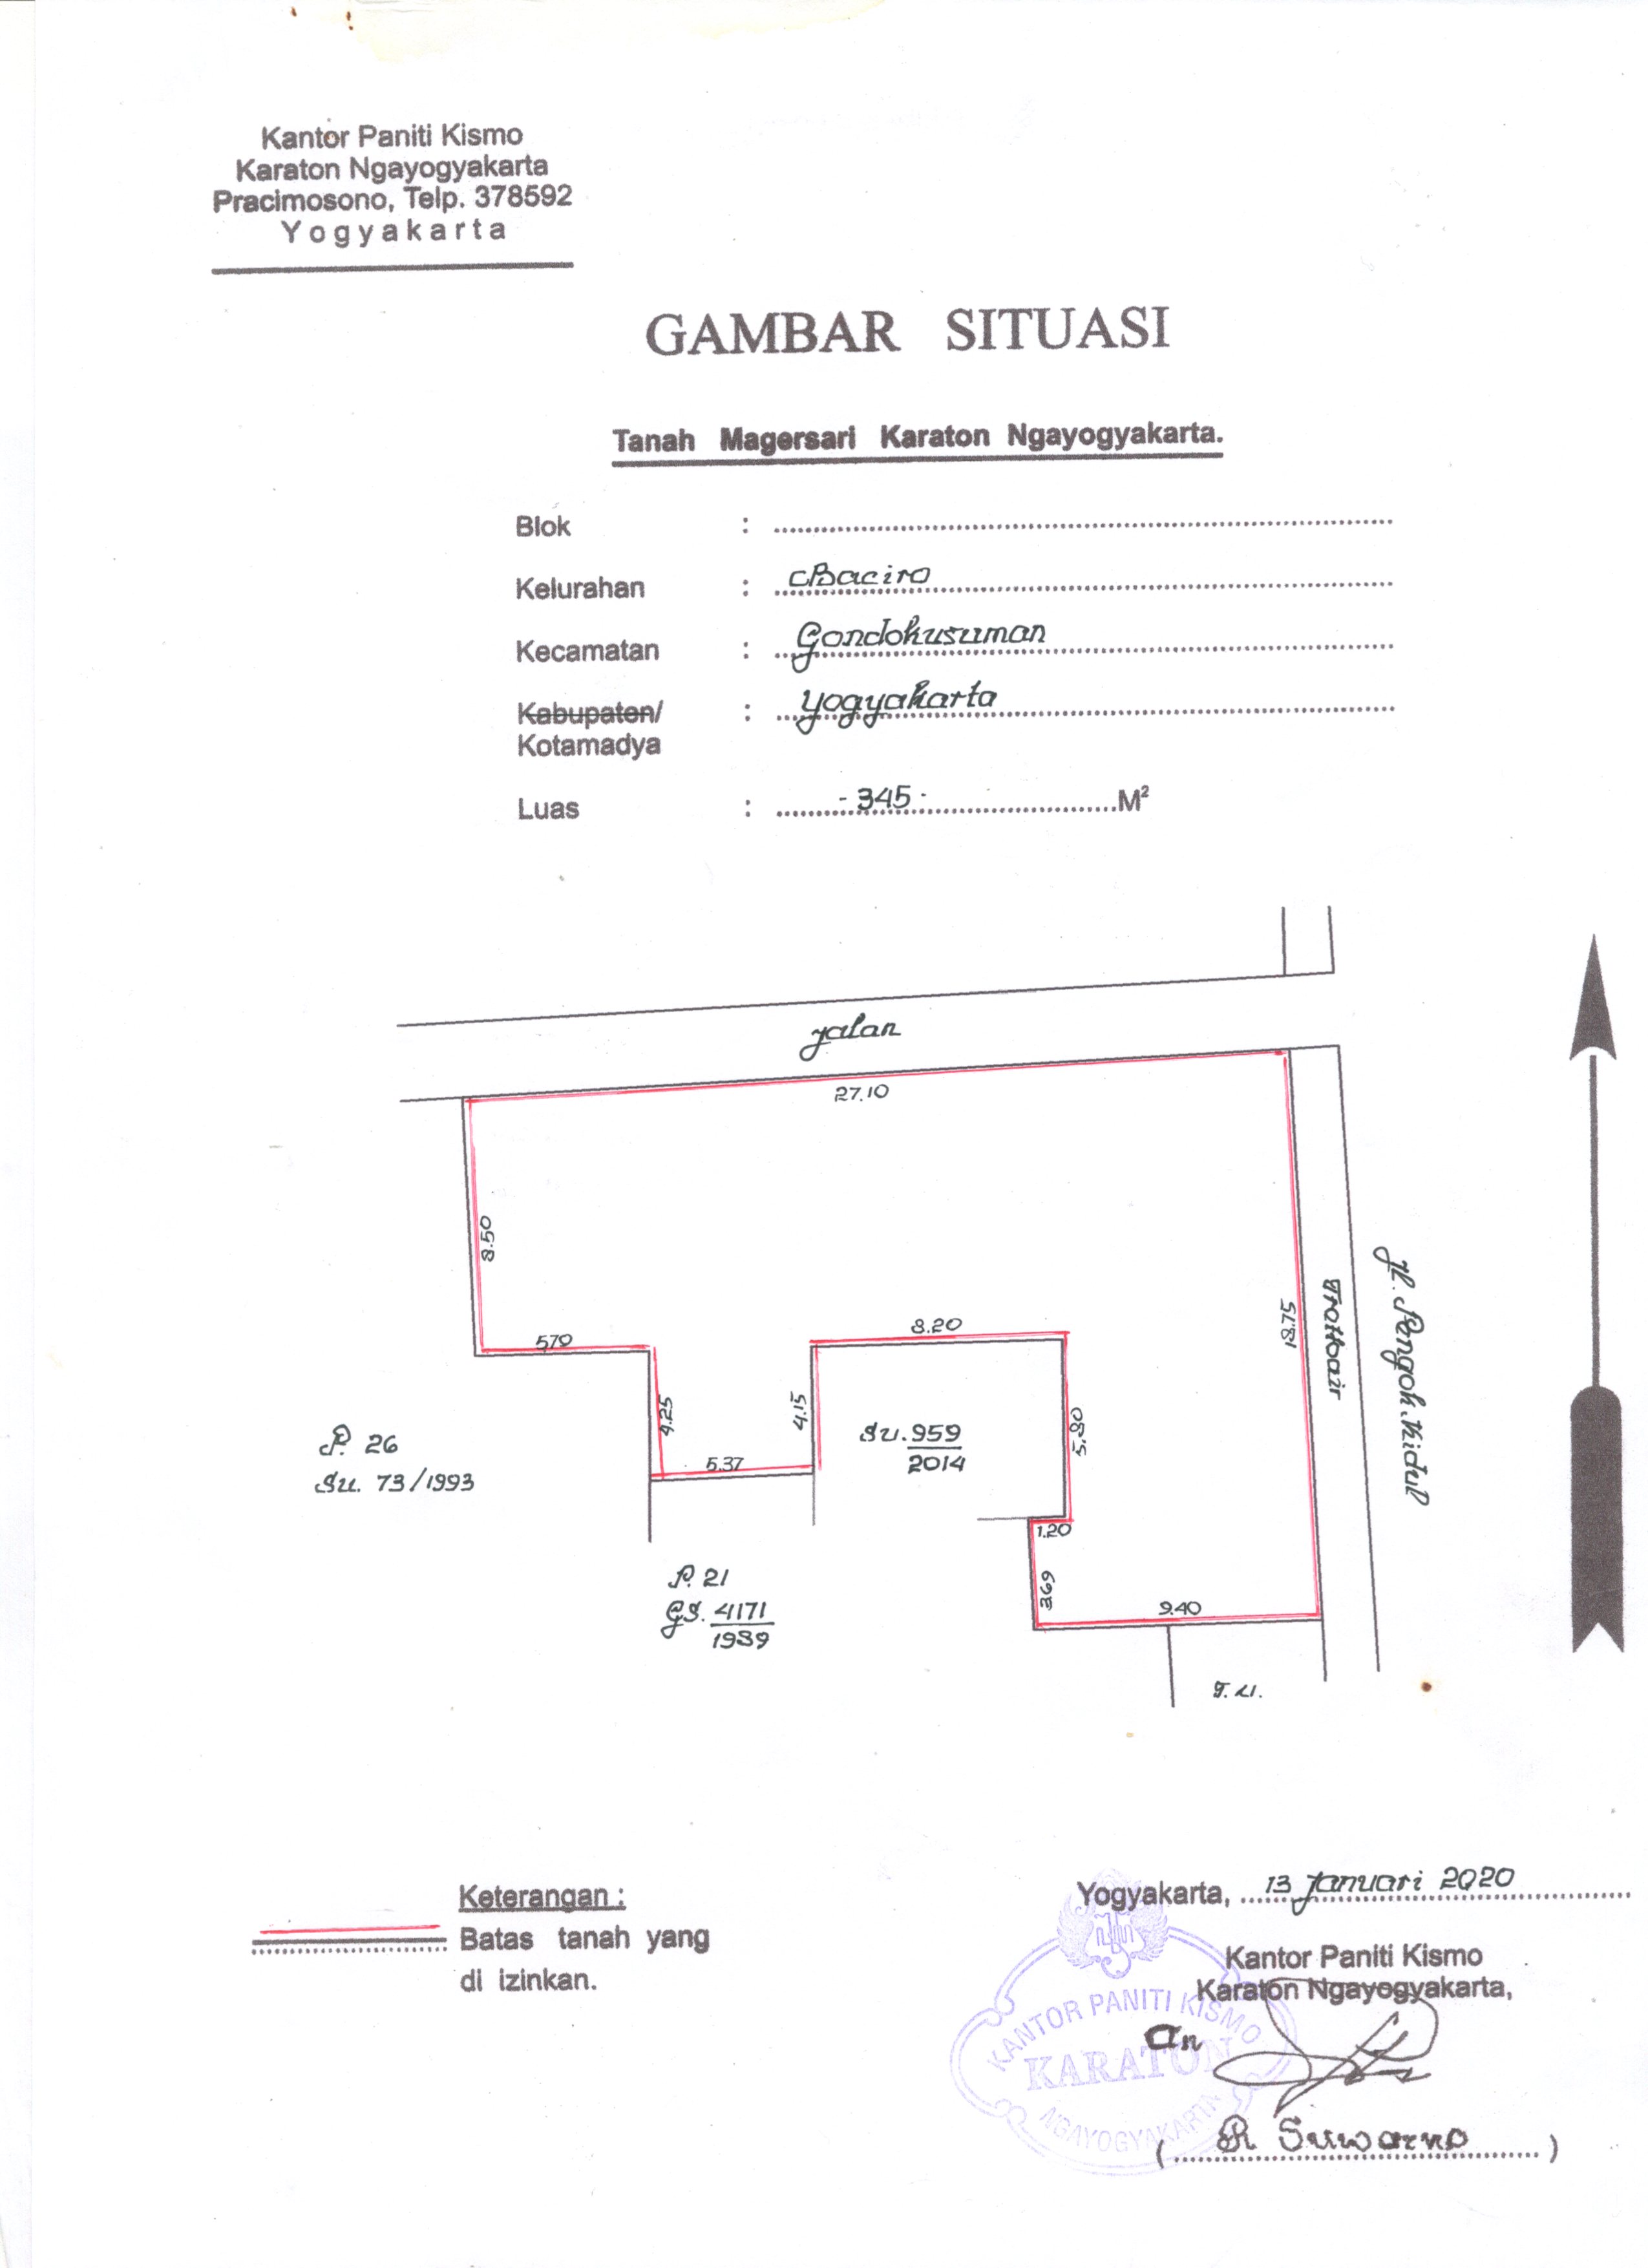 Kantor Paniti Kismo
Karaton Ngayogyakarta
Pracimosono, Telp. 378592
Yogyakarta
GAMBAR SITUASI
Tanah Magersari Karaton Ngayogyakarta.
Blok :
Kelurahan : Baciro
Kecamatan : Gondokusuman
Kabupaten/ : Yogyakarta
Kotamadya
Luas : - 345 - M²
Jalan
27.10
8.50
18.75
Trottoir
Jl. Pengok Kidul
5.70
8.20
4.25
4.15
5.80
5.37
P. 26
Su. 73/1993
Su. 959
2014
1.20
3.69
9.40
P. 21
GS. 4171
1989
T.U.
Keterangan :
Batas tanah yang
di izinkan.
Yogyakarta, 13 Januari 2020
Kantor Paniti Kismo
Karaton Ngayogyakarta,
an
KANTOR PANITI KISMO
KARATON
NGAYOGYAKARTA
( R Suwarno )